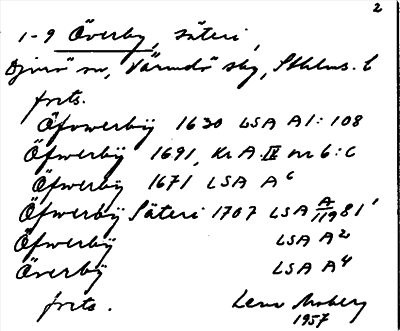 2
1-9 Överby, säteri,
Djurö sn, Värmdö skg, Sthlms. l
forts.
Öfwerbÿ 1630 LSA A1:108
Öfwerbÿ 1691, Kr A IV nr 6:c
Öfwerbÿ 1671 LSA A6
Öfwerbÿ Säteri 1707 LSA A/119 81'
Öfwerbÿ LSA A2
Öwerbÿ LSA A4
forts. Lena Moberg
1957